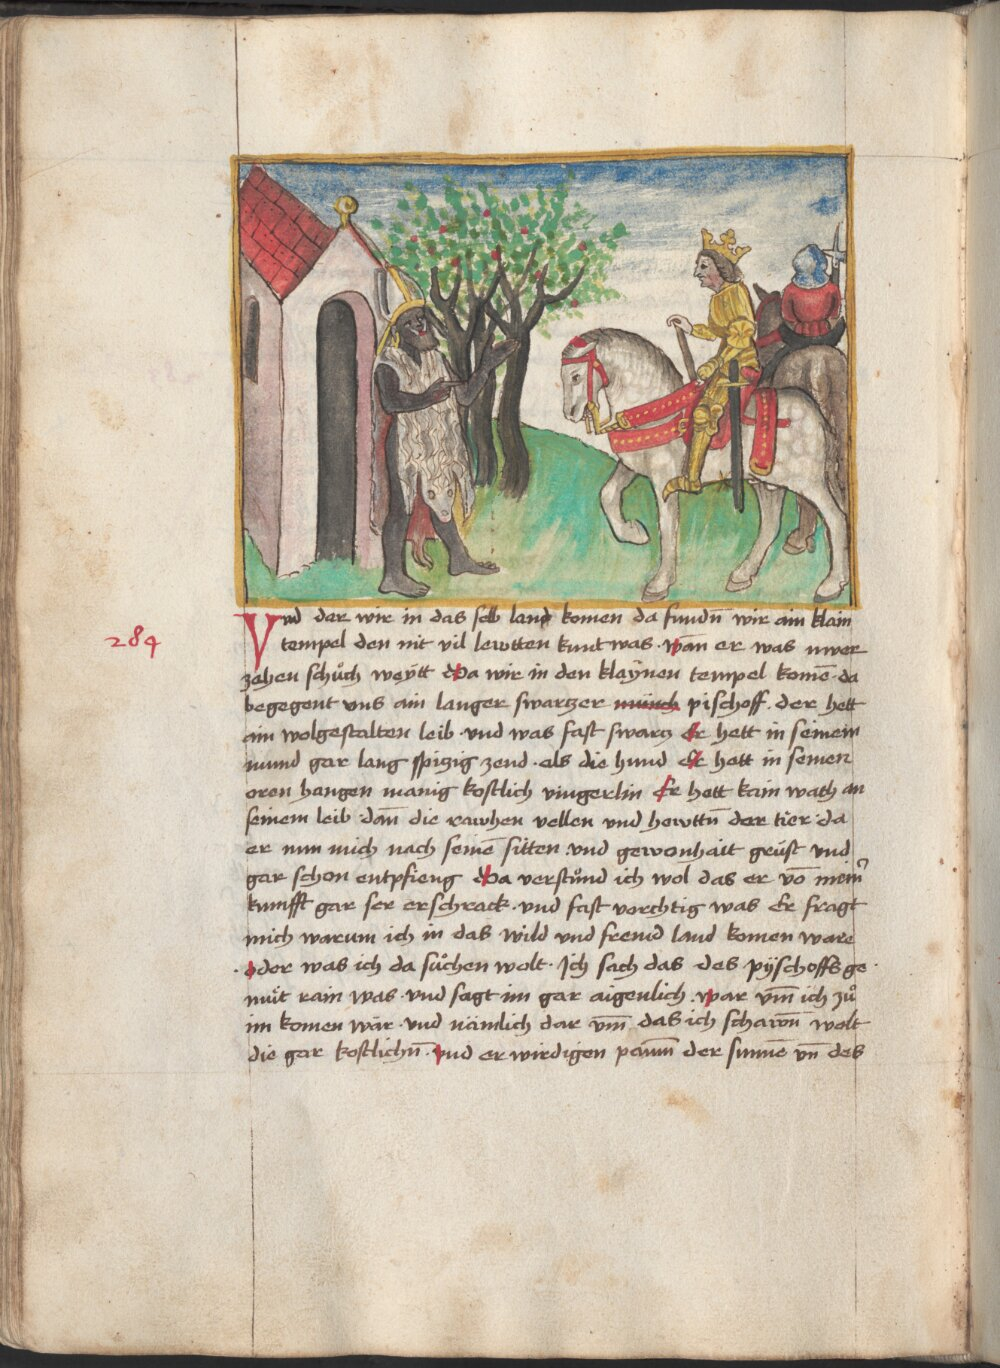 284
Vnd der wir in das selb land komen da fundn̄ wir ain klain
tempel den nit vil lewtten kunt was · wan er was nwer
zehen schůch weÿtt Da wir in den klaÿnen tempel komē · da
begegent vns ain langer swartzer münch pischoff · der hett
ain wolgestalten leib · vnd was fast swartz Er hett in seinem
mund gar lang spitzig zend · als die hund Er hett in seinen
oren hangen manig kostlich vingerlin Er hett kain wath an
seinem leib · dan̄ die rawhen vellen vnd hewttn̄ der tier · da
er nun mich nach seinē sitten · vnd gewonhait grüst vnd
gar schon entpfieng Da verstůnd ich wol das er vō meinr̄
kunfft gar ser erschrack · vnd fast vorchtig was Er fragt
mich warum ich in das wild vnd fremd land komen ware
· oder was ich da sůchen wolt · Ich sach das des pÿschoffs ge
müt rain was · vnd sagt im gar aigenlich · war vm̄ ich zů
im komen wär · vnd nämlich dar vm̄ das ich schawn̄ wolt
die gar kostlichn̄ · vnd er wirdigen paum̄ der sunnē vn̄ des